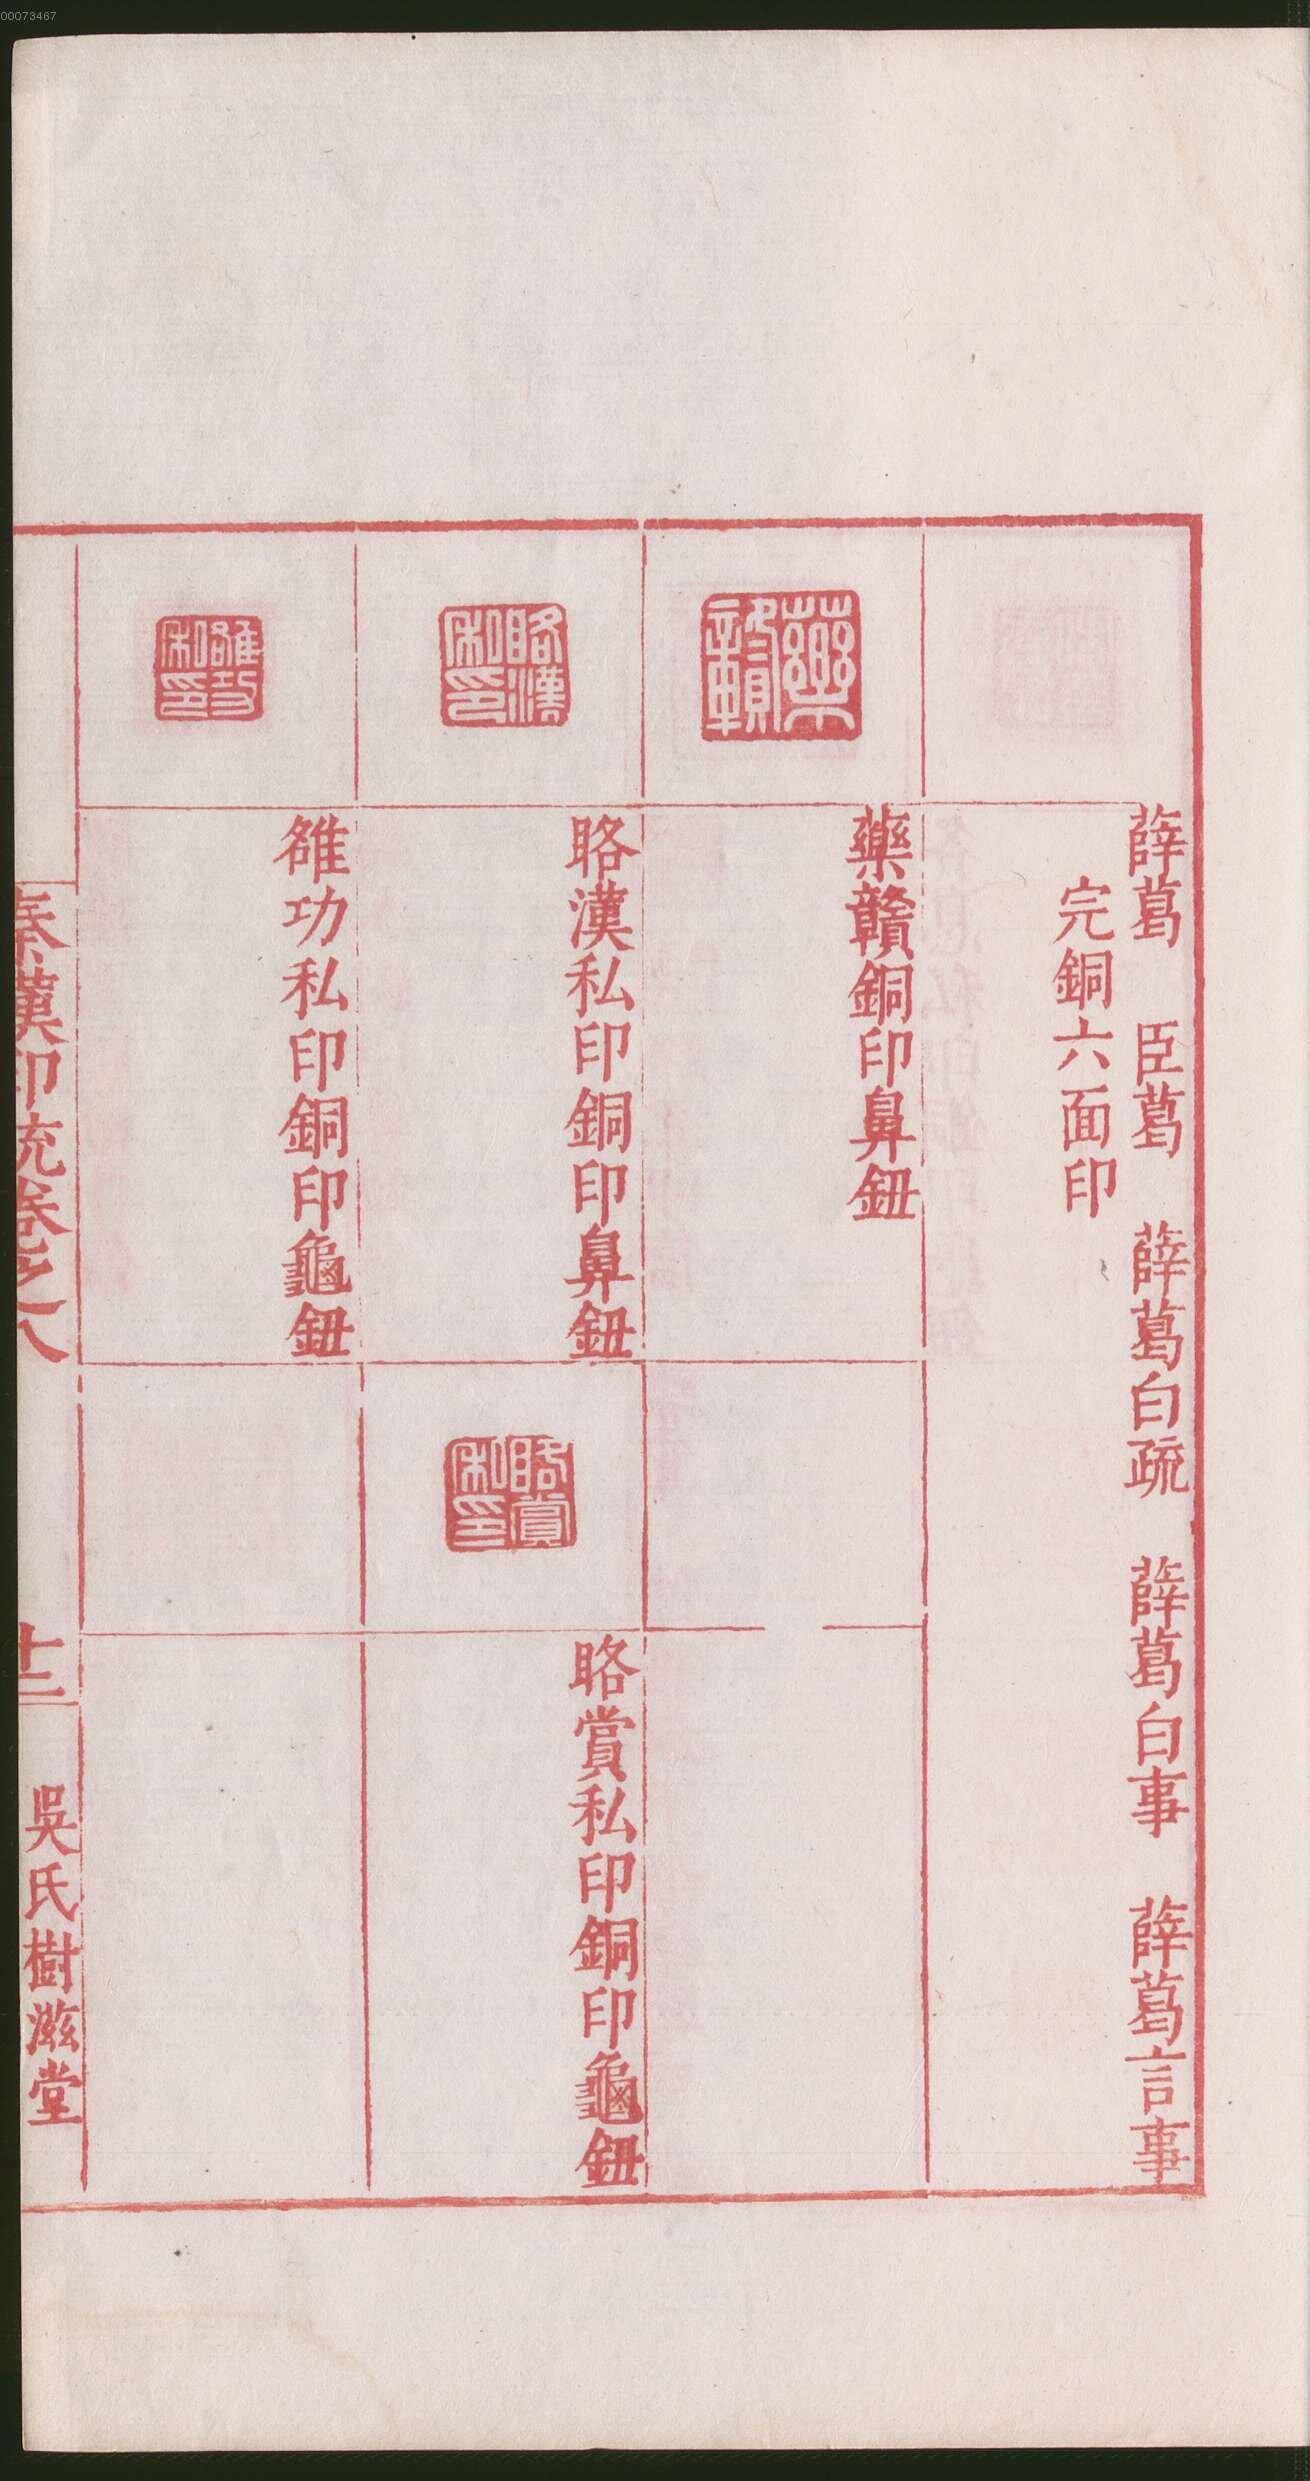 00073467
薛葛　臣葛　薛葛白疏　薛葛白事　薛葛言事
完銅六面印
藥贛
藥贛銅印鼻鈕
䀩漢私印
䀩漢私印銅印鼻鈕
䀩賞私印
䀩賞私印銅印龜鈕
雒功私印
雒功私印銅印龜鈕
秦漢印統卷之八
十二
吳氏樹滋堂